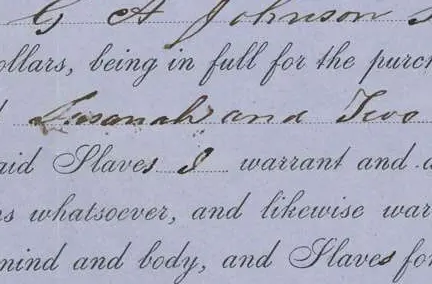 G A Johnson
ollars, being in full for the purch
Susanah and Two
aid Slaves I warrant and d
s whatsoever, and likewise war
mind and body, and Slaves for